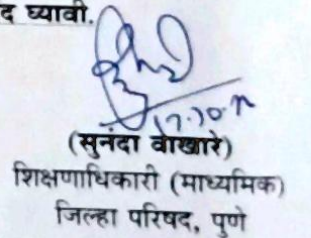 द घ्यावी.
(सुनंदा वाखारे)
शिक्षणाधिकारी (माध्यमिक)
जिल्हा परिषद, पुणे